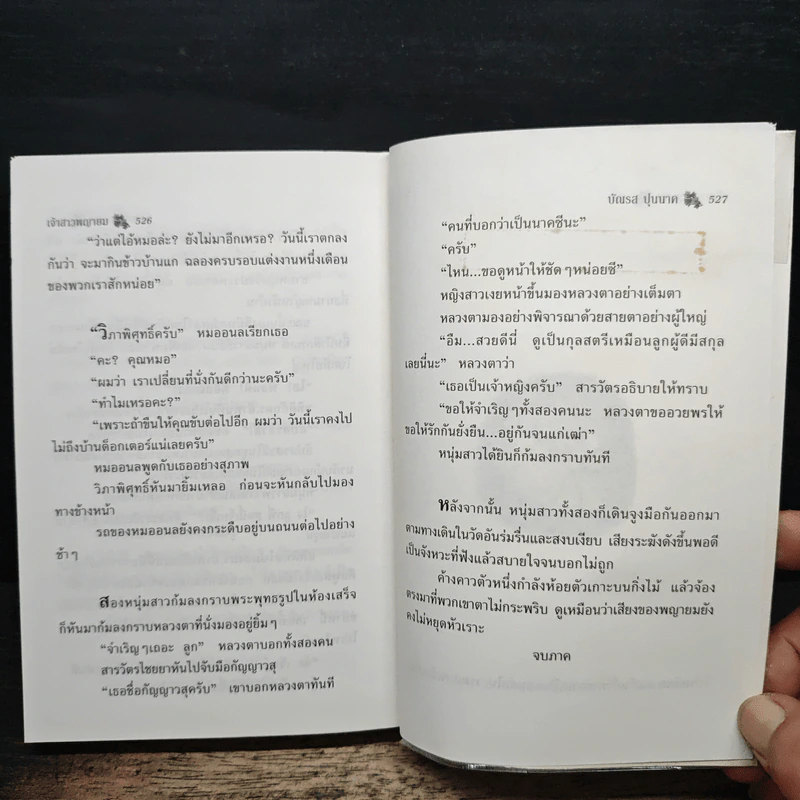 เจ้าสาวพญายม 526
“ว่าแต่ไอ้หมอล่ะ? ยังไม่มาอีกเหรอ? วันนี้เราตกลง
กันว่า จะมากินข้าวบ้านแก ฉลองครบรอบแต่งงานหนึ่งเดือน
ของพวกเราสักหน่อย”
“วิภาพิศุทธิ์ครับ” หมออนลเรียกเธอ
“คะ? คุณหมอ”
“ผมว่า เราเปลี่ยนที่นั่งกันดีกว่านะครับ”
“ทำไมเหรอคะ?”
“เพราะถ้าขืนให้คุณขับต่อไปอีก ผมว่า วันนี้เราคงไป
ไม่ถึงบ้านด็อกเตอร์แน่เลยครับ”
หมออนลพูดกับเธออย่างสุภาพ
วิภาพิศุทธิ์หันมายิ้มเหลอ ก่อนจะหันกลับไปมอง
ทางข้างหน้า
รถของหมออนลยังคงกระดืบอยู่บนถนนต่อไปอย่าง
ช้าๆ
สองหนุ่มสาวก้มลงกราบพระพุทธรูปในห้องเสร็จ
ก็หันมาก้มลงกราบหลวงตาที่นั่งมองอยู่ยิ้มๆ
“จำเริญๆเถอะ ลูก” หลวงตาบอกทั้งสองคน
สารวัตรไชยยาหันไปจับมือกัญญาวสุ
“เธอชื่อกัญญาวสุครับ” เขาบอกหลวงตาทันที
บัณรส ปุนนาค 527
“คนที่บอกว่าเป็นนาคซีนะ”
“ครับ”
“ไหน...ขอดูหน้าให้ชัดๆหน่อยซี”
หญิงสาวเงยหน้าขึ้นมองหลวงตาอย่างเต็มตา
หลวงตามองอย่างพิจารณาด้วยสายตาอย่างผู้ใหญ่
“อืม...สวยดีนี่ ดูเป็นกุลสตรีเหมือนลูกผู้ดีมีสกุล
เลยนี่นะ” หลวงตาว่า
“เธอเป็นเจ้าหญิงครับ” สารวัตรอธิบายให้ทราบ
“ขอให้จำเริญๆทั้งสองคนนะ หลวงตาขออวยพรให้
ขอให้รักกันยั่งยืน...อยู่กันจนแก่เฒ่า”
หนุ่มสาวได้ยินก็ก้มลงกราบทันที
หลังจากนั้น หนุ่มสาวทั้งสองก็เดินจูงมือกันออกมา
ตามทางเดินในวัดอันร่มรื่นและสงบเงียบ เสียงระฆังดังขึ้นพอดี
เป็นจังหวะที่ฟังแล้วสบายใจจนบอกไม่ถูก
ค้างคาวตัวหนึ่งกำลังห้อยตัวเกาะบนกิ่งไม้ แล้วจ้อง
ตรงมาที่พวกเขาตาไม่กระพริบ ดูเหมือนว่าเสียงของพญายมยัง
คงไม่หยุดหัวเราะ
จบภาค